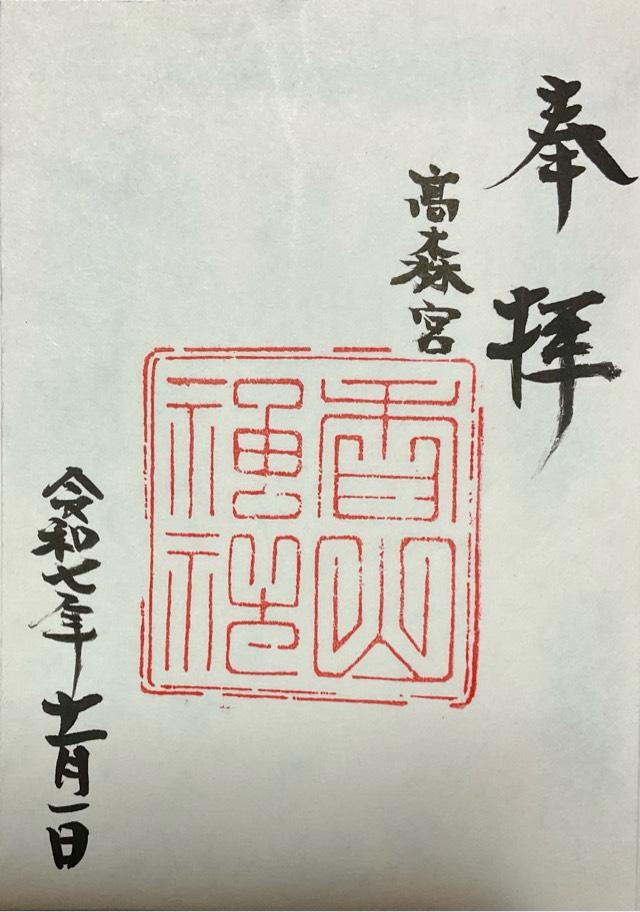 奉拝
髙森宮
香山
神社
令和七年十一月一日